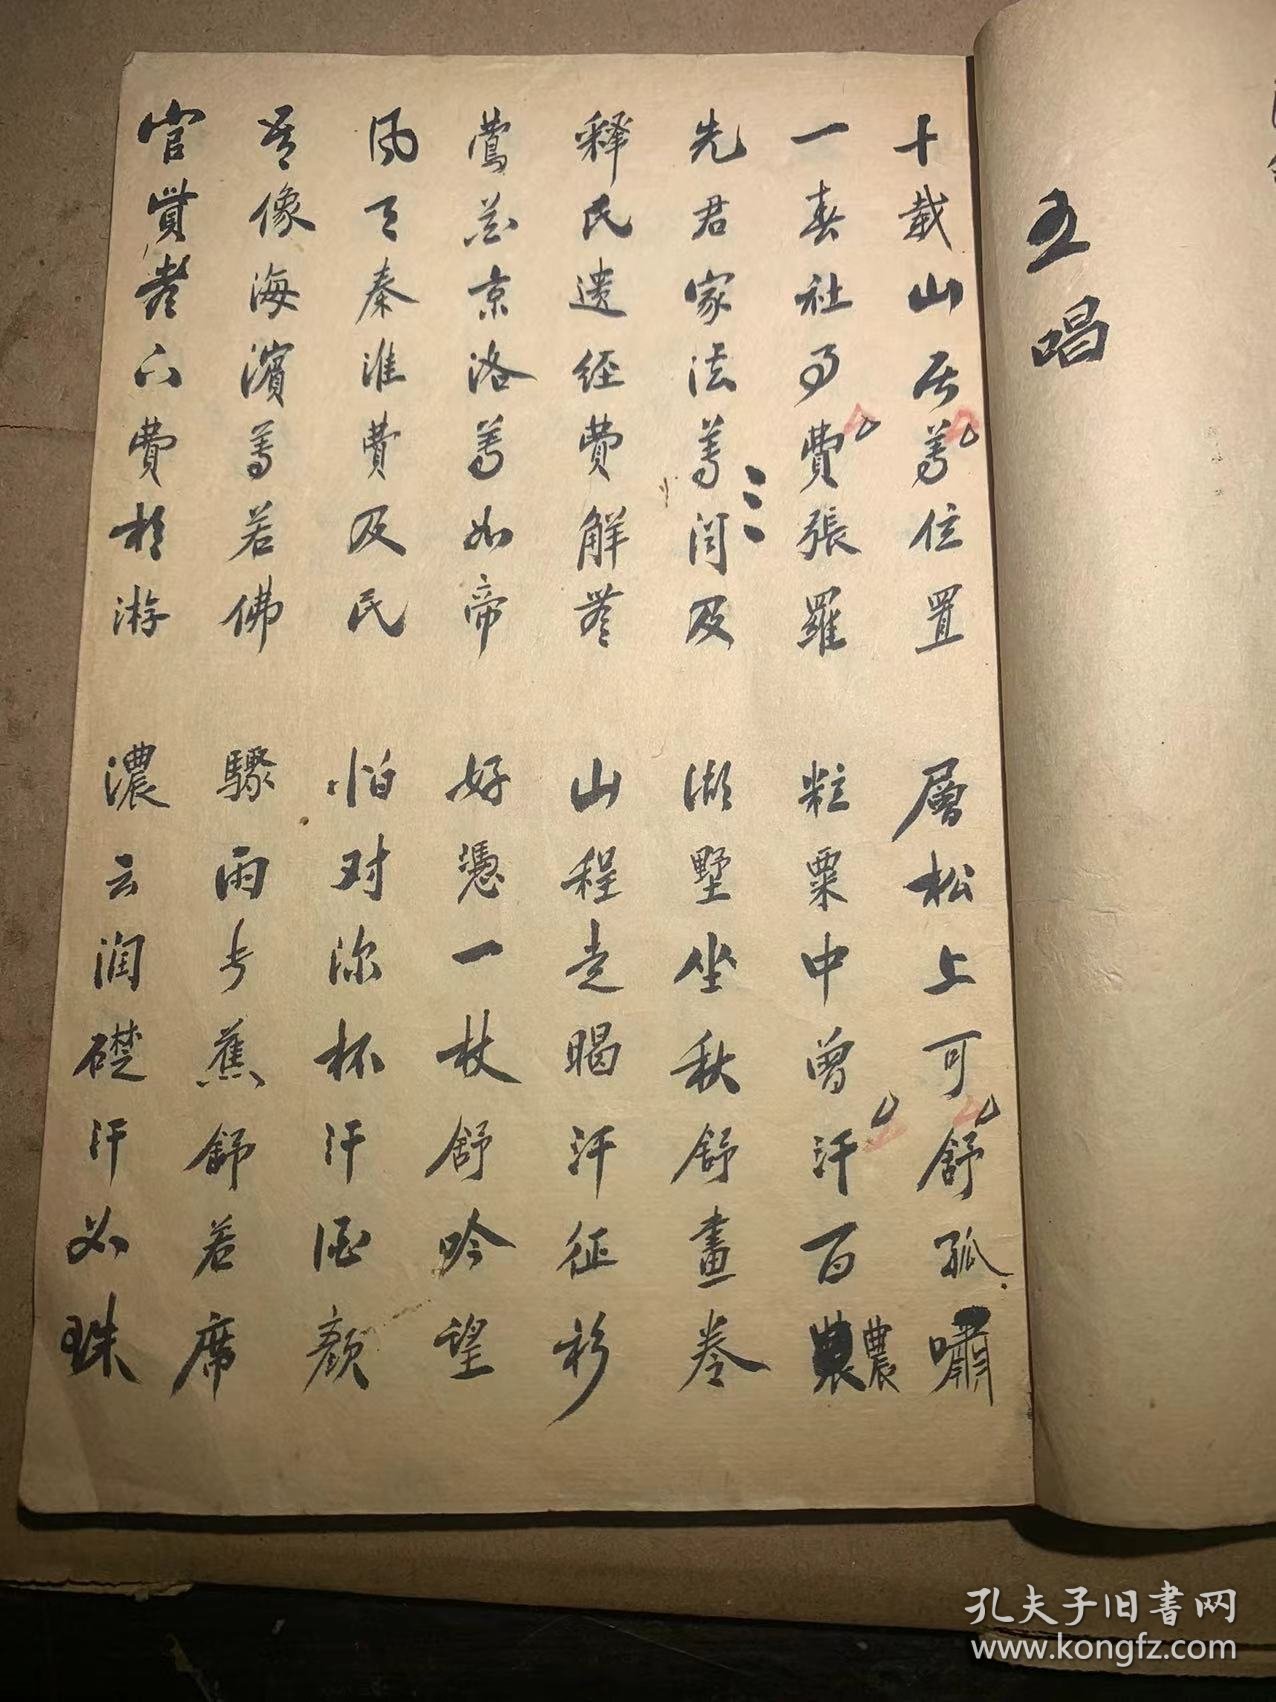 五唱
十載山居善位置
一春社事費張羅
先君家法善及
釋氏遺經費解
鶯花京洛善如帝
風秦淮費及民
像海濱善若佛
官費於游
層松上可舒孤嘯
粒粟中曾汗百農農
湖墅坐秋舒畫卷
山程走暍汗征衫
好憑一杖舒吟望
怕对深杯汗酒顏
驟雨长蕉舒若席
濃云润礎汗如珠
孔夫子旧书网
www.kongfz.com